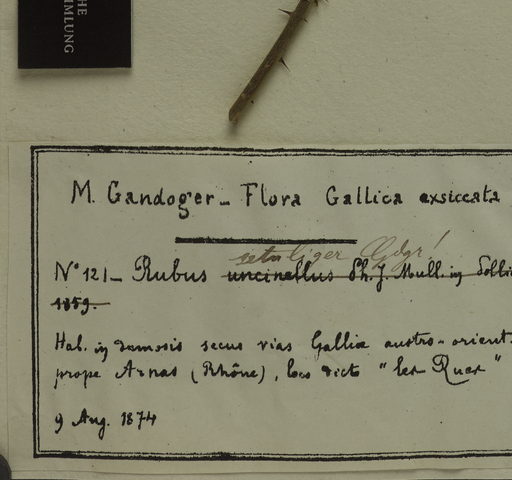 HE
MMLUNG
M. Gandoger - Flora Gallica exsiccata
setuliger Gdgr!
N° 121 - Rubus uncinellus Ph. J. Mull. in
1859.
Hab. in dumosis secus vias Galliæ austro-orient.
prope Arnas (Rhône), loco dicto "les Rues"
9 Aug. 1874